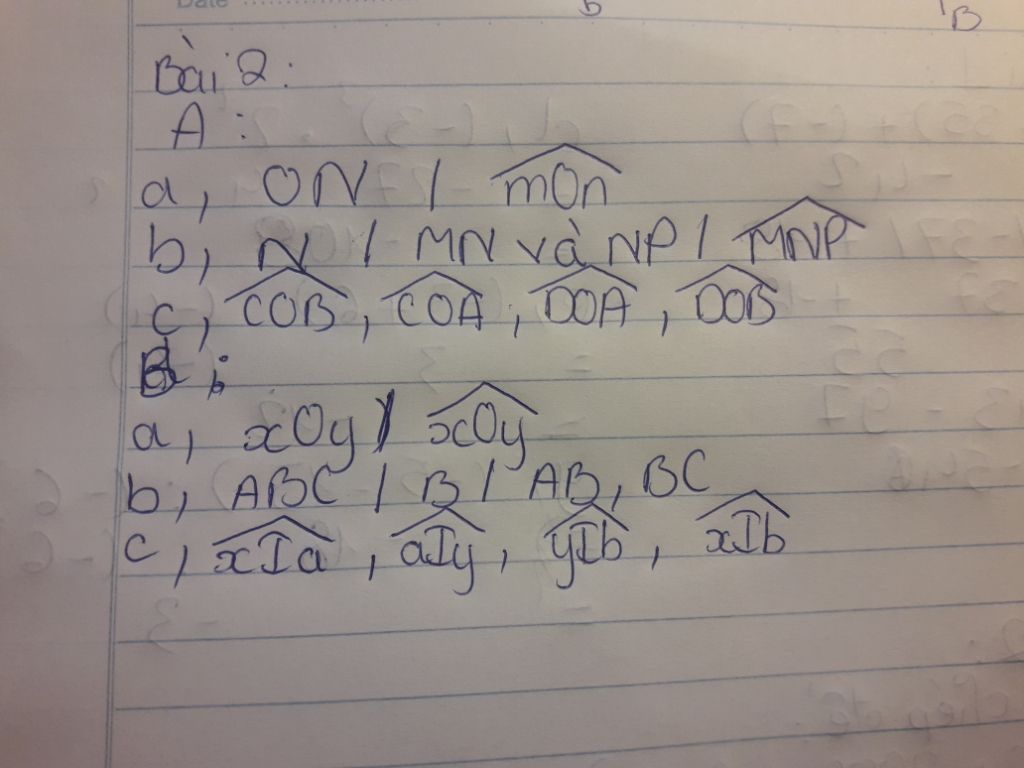 Date
b
B
Bài 2:
A:
a, ON / m̂On
b, N / MN và NP / M̂NP
c, ĈOB, ĈOA, D̂OA, D̂OB
B:
a, xOy / x̂Oy
b, ABC / B / AB, BC
c, x̂Ia, âIy, ŷIb, x̂Ib